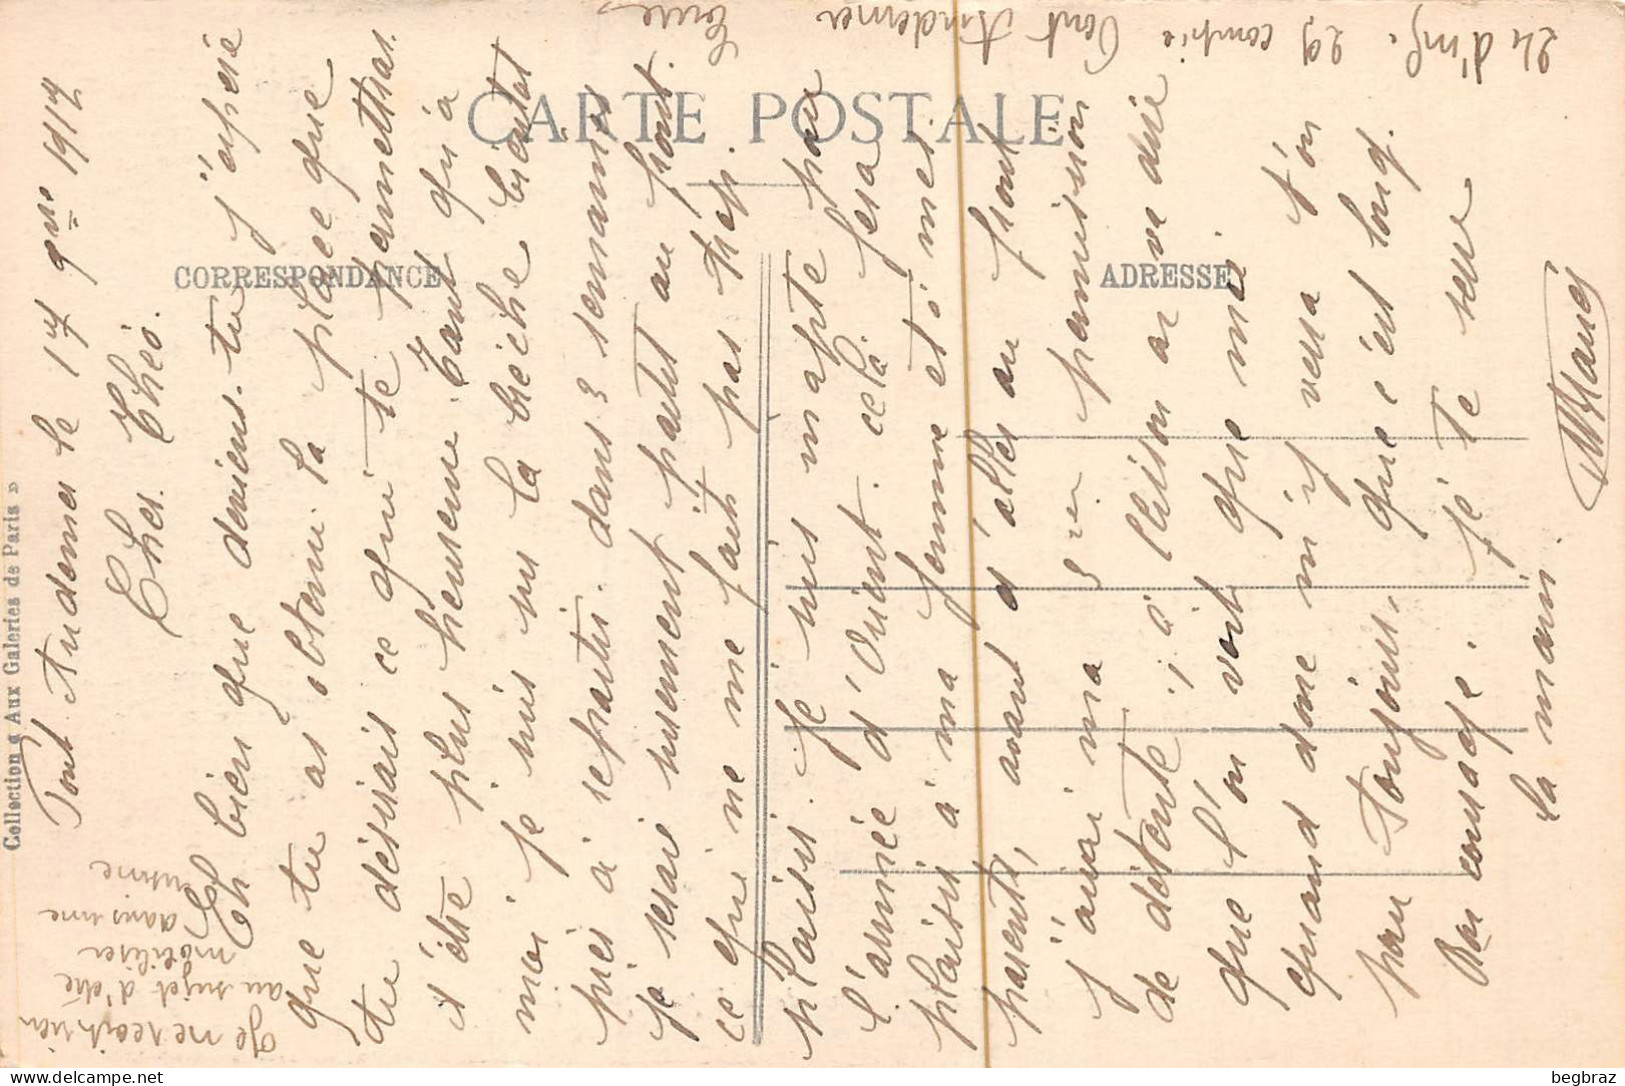 CARTE POSTALE
CORRESPONDANCE
ADRESSE
Collection « Aux Galeries de Paris »
Pont Audemer le 17 9bre 1917
Cher Théo.
Eh bien que deviens-tu j'espère
que tu as obtenu la place que
tu désirais ce qui te permettras
d'être plus heureux. Tant qu'à
moi je suis sur la brèche bientot
près à repartir. dans 3 semaines
je serai surement partit au front.
ce qui ne me fait pas trop
plaisir. Je suis mapte pour
l'armée d'Orient. cela fera
plaisir à ma femme et à mes
parents, avant d'aller au front
j'aurai ma permission
de détente, à l'Etison ar ve dire
que l'on voit que mes
quand donc m'y verra t'on
pour toujours, que c'est long.
Bon courage. je te serre
la main.
24 d'inf. 29 compie Pont Audemer
Eure
Je ne recoit rien
au sujet d'être
mobiliser
dans une
usine
begbraz